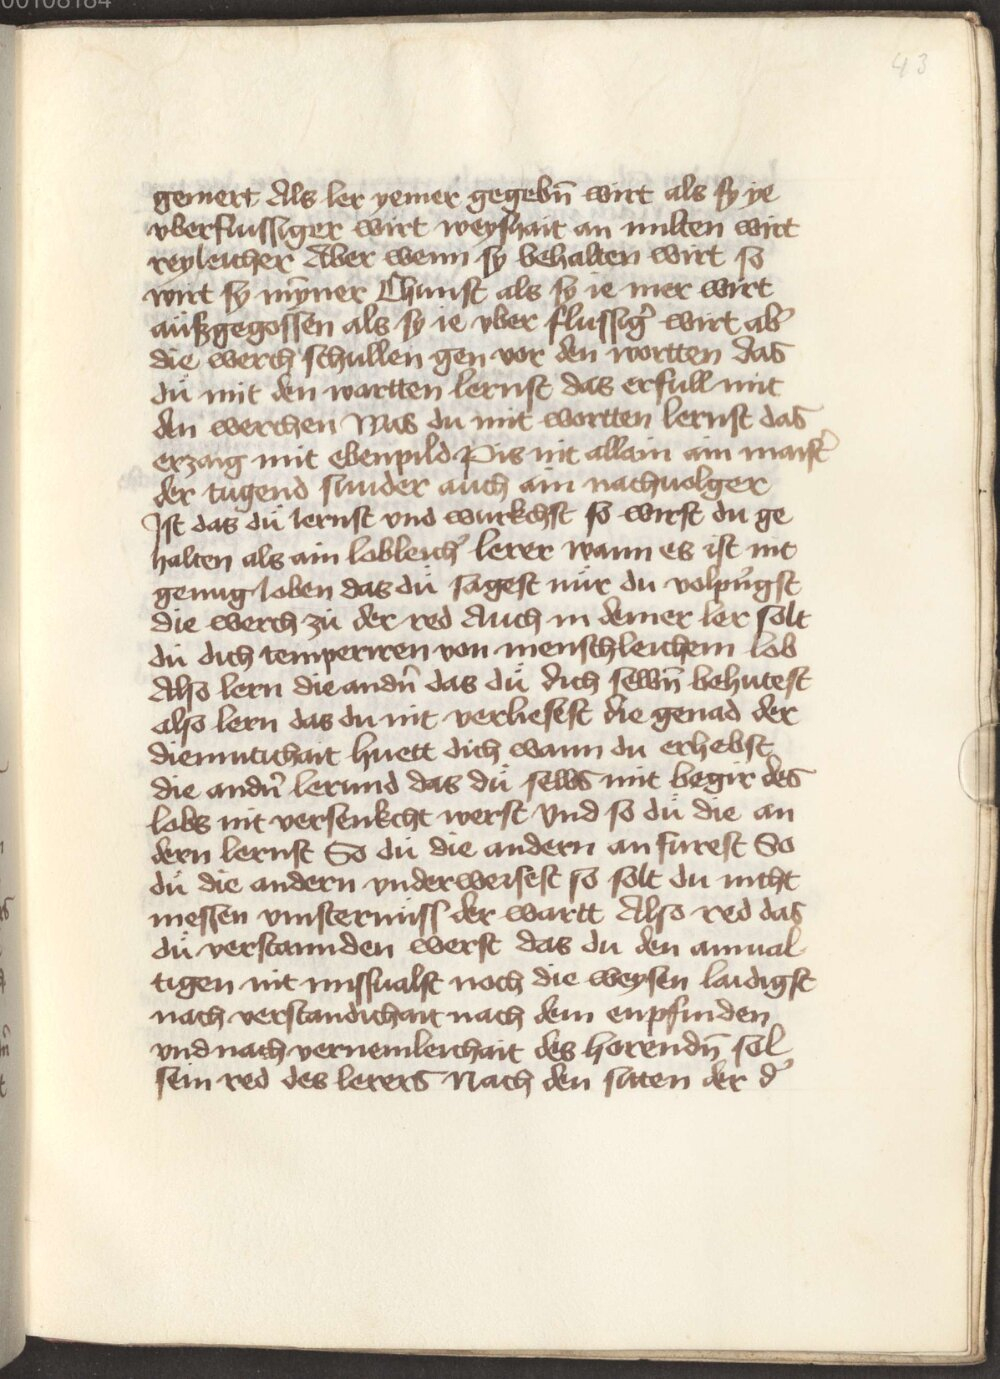 00108184
43
gemert Als ler yemer gegebn̄ wirt als sy ye
vberflussiger wirt weyshait an milten wirt
reyleicher Aber wenn sy behalten wirt so
wirt sy mÿner Chunst als sy ie mer wirt
aüßgegossen als sy ie vber flussig̉ wirt ab̉
die werch schullen gen vor den wortten das
dü mit den wartten lernst das erfull mit
den werchen Was du mit wortten lernst das
erzaig mit ebenpild Pis nit allain ain maist̉
der tugend sunder auch ain nachuolger
Ist das dü lernst vnd würkchst so wirst du ge
halten als ain lobleich̉ lerer wann es ist nit
genug loben das dü sagest nür du volpringst
die werch zü der red Auch in deiner ler solt
dü dich temperiren von menschleichem lob
Also lern die andn̄ das dü dich selbn̄ behütest
also lern das du nit verliesest die genad der
diemutichait huett dich wann du erhebst
die andn̄ lerund das dü selbs mit begir des
lobs nit versenkcht werst Vnd so dü die an
dern lernst So dü die andern anfürest So
dü die andern vnderweisest so solt du nicht
messen vinsternüss der wartt Also red das
dü verstannden werst das du den ainual
tigen nit missualst noch die weysen laidigst
nach verstandichait nach dem enpfinden
vnd nach vernemleichait des horendn̄ sol
sein red des lerers Nach den siten der d̉